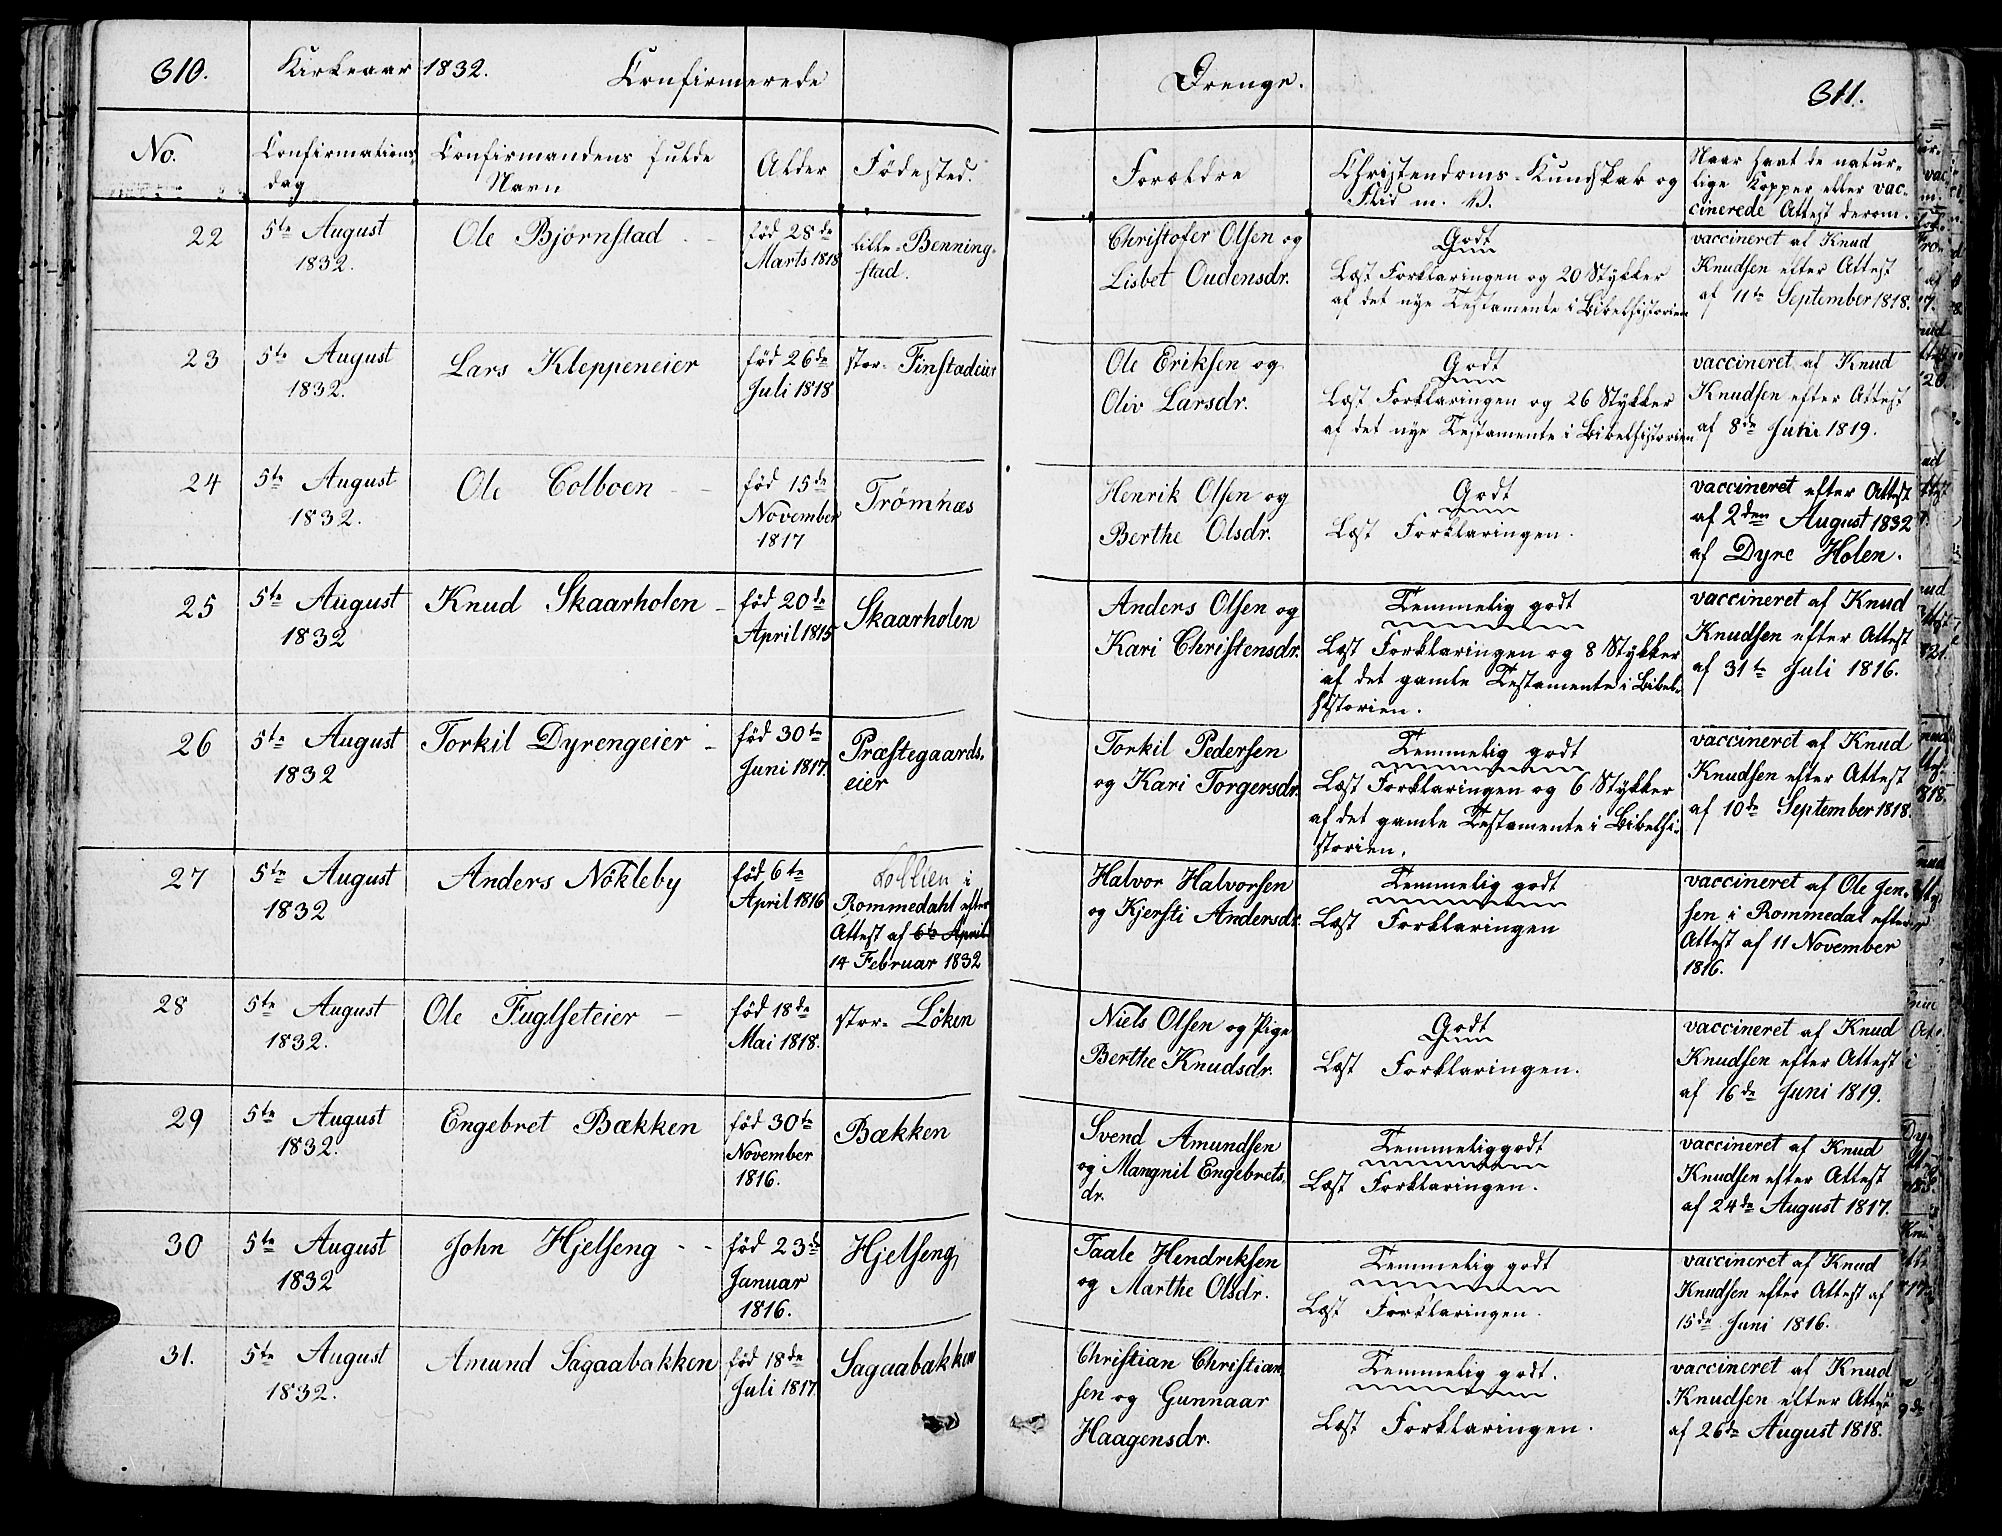 310. Kirkeaar 1832. Confirmerede
No. Confirmations-dag Confirmandens fulde Navn Alder Fødested.
22 5te August 1832. Ole Bjørnstad født 28de Marts 1818 lille-Benningstad.
23 5te August 1832. Lars Kleppeneier født 26de Juli 1818 stor-Finstadeier
24 5te August 1832. Ole Colboen født 15de November 1817 Trømnæs
25 5te August 1832 Knud Skaarholen født 20de April 1815 Skaarholen
26 5te August 1832 Torkil Dyrengeier født 30te Juni 1817. Præstegaards-eier
27 5te August 1832 Anders Nökleby født 6te April 1816 i Rommedahl efter Attest af 6te April 14 Februar 1832
28 5te August 1832. Ole Fuglseteier født 18de Mai 1818. stor-Löken
29 5te August 1832. Engebret Bækken født 30te November 1816. Bækken
30 5te August 1832 John Hjelseng født 23de Januar 1816. Hjelseng
31. 5te August 1832. Amund Sagaabakken født 18de Juli 1817. Sagaabakken
Drenge. 311.
Forældre Christendoms-Kundskab og Flid m. V. Naar havt de naturlige Kopper eller vaccinerede Attest derom.
Christofer Olsen og Lisbet Oudensdr. Godt Læst Forklaringen og 20 Stykker af det nye Testamente i Bibelhistorien vaccineret af Knud Knudsen efter Attest af 11te September 1818.
Ole Eriksen og Oliv Larsdr. Godt Læst Forklaringen og 26 Stykker af det nye Testamente i Bibelhistorien vaccineret af Knud Knudsen efter Attest af 8de Juni 1819.
Henrik Olsen og Berthe Olsdr. Godt Læst Forklaringen. vaccineret efter Attest af 2den August 1832 af Dyre Holen.
Anders Olsen og Kari Christensdr. Temmelig godt Læst Forklaringen og 8 Stykker af det gamle Testamente i Bibelhistorien. vaccineret af Knud Knudsen efter Attest af 31te Juli 1816.
Torkil Pedersen og Kari Torgersdr. Temmelig godt Læst Forklaringen og 6 Stykker af det gamle Testamente i Bibelhistorien. vaccineret af Knud Knudsen efter Attest af 10de September 1818.
Halvor Halvorsen og Kjersti Andersdr. Temmelig godt Læst Forklaringen vaccineret af Ole Jensen i Rommedal efter Attest af 11 November 1816.
Niels Olsen og Pige Berthe Knudsdr. Godt Læst Forklaringen. vaccineret af Knud Knudsen efter Attest af 16de Juni 1819.
Svend Amundsen og Mangnil Engebretsdr. Temmelig godt Læst Forklaringen. vaccineret af Knud Knudsen efter Attest af 24de August 1817.
Taale Hendriksen og Marthe Olsdr. Temmelig godt Læst Forklaringen. vaccineret af Knud Knudsen efter Attest af 15de Juni 1816.
Christian Christiansen og Gunnaar Haagensdr. Temmelig godt. Læst Forklaringen. vaccineret af Knud Knudsen efter Attest af 26de August 1818.